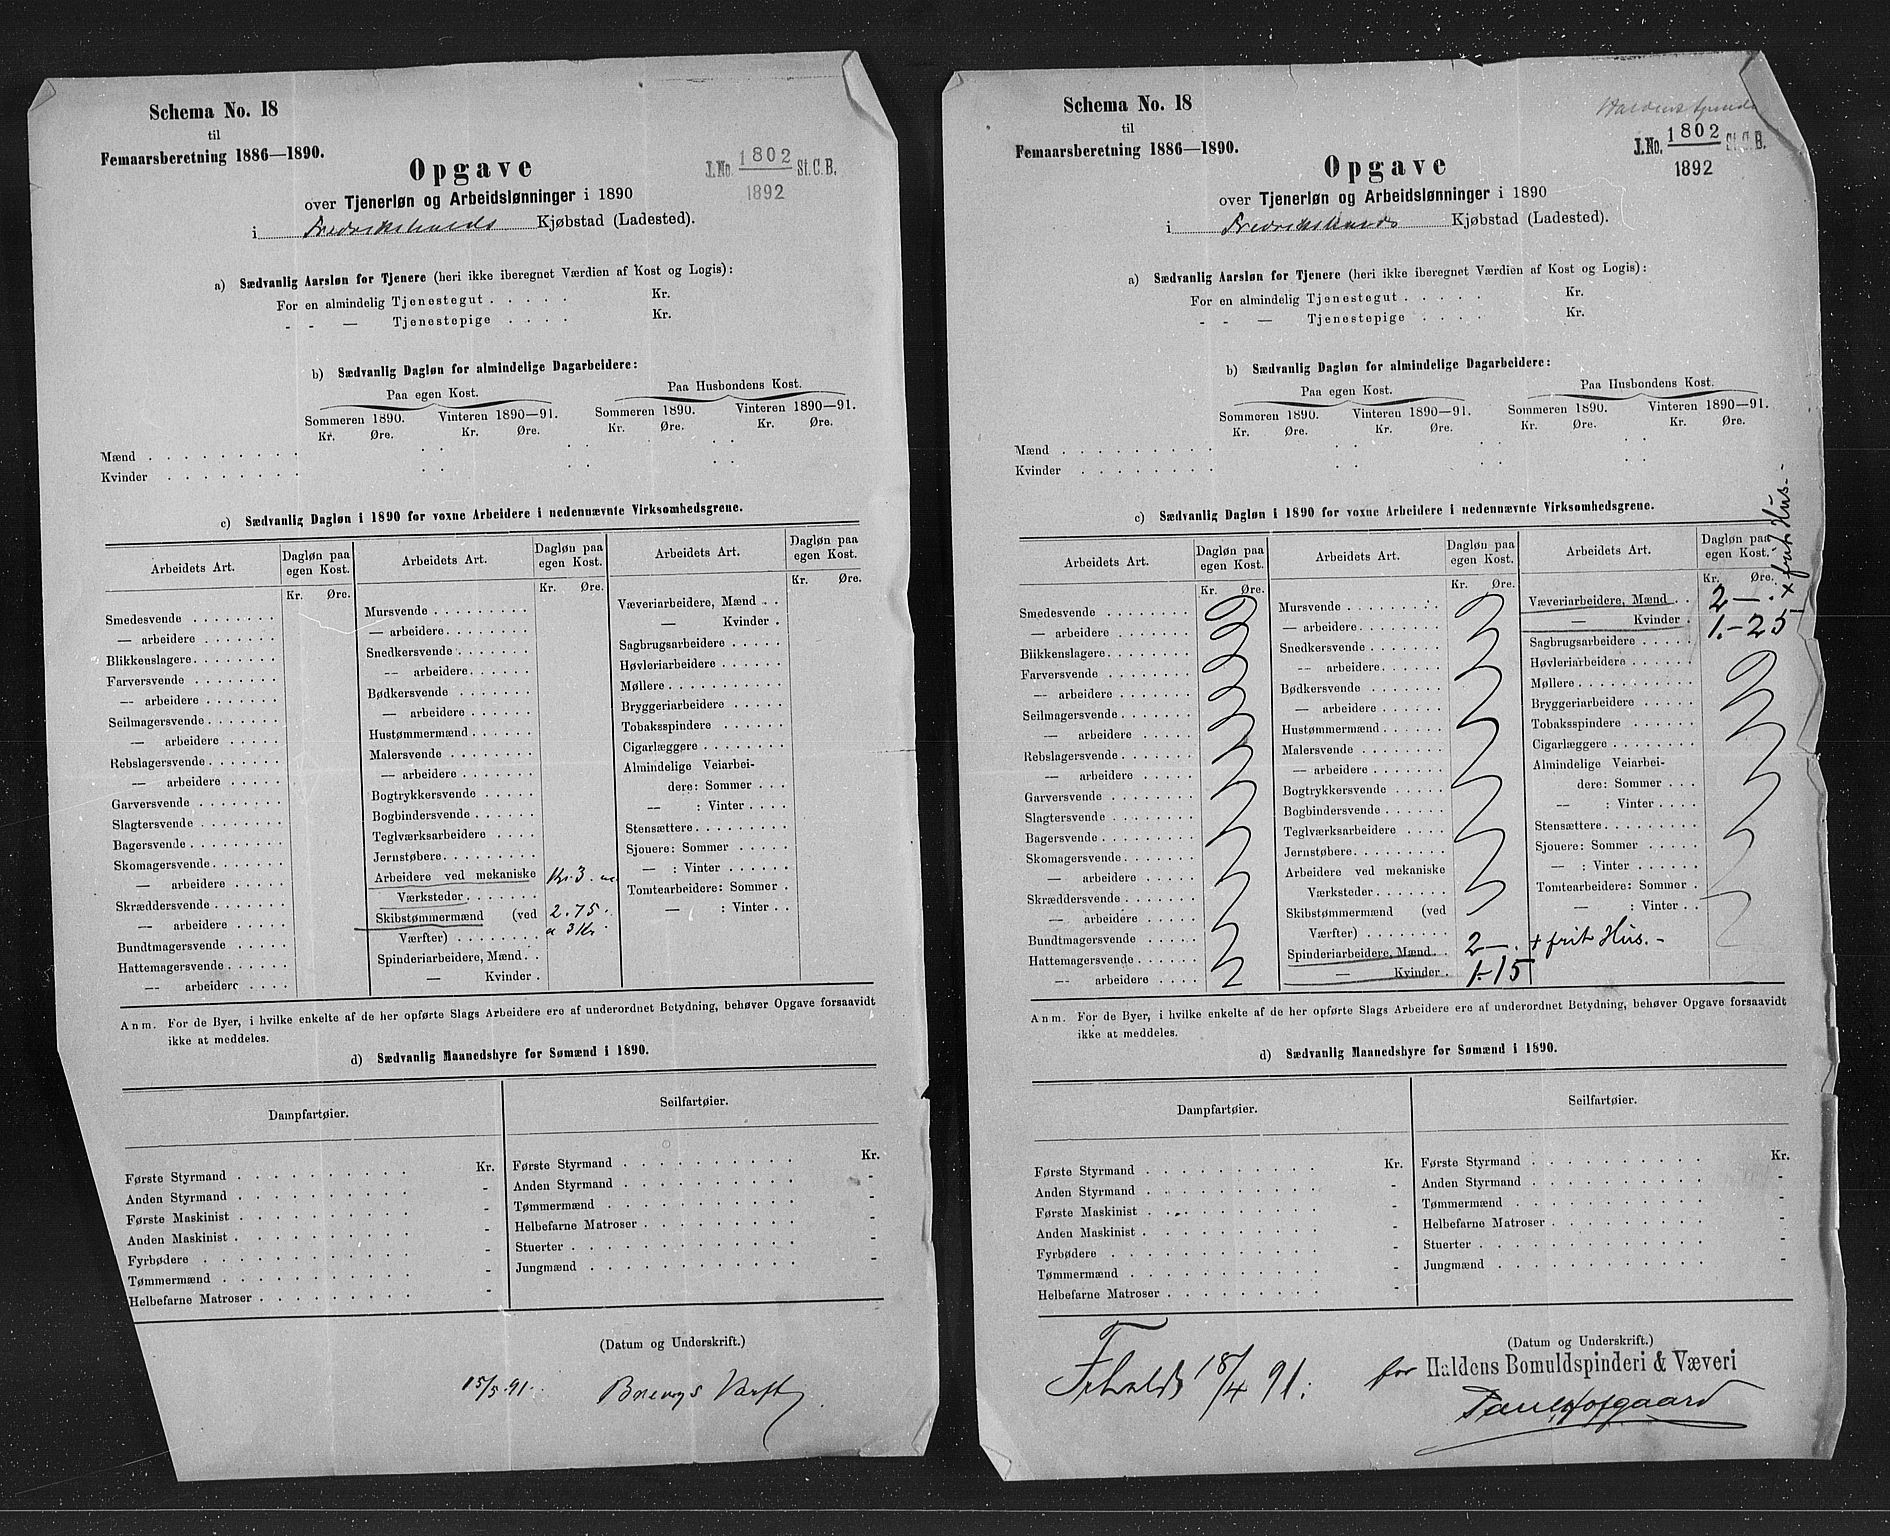 Schema No. 18
til
Femaarsberetning 1886—1890.
Opgave
J. No. 1802 St. C. B.
1892
over Tjenerløn og Arbeidslønninger i 1890
i Fredrikshalds Kjøbstad (Ladested).
a) Sædvanlig Aarsløn for Tjenere (heri ikke iberegnet Værdien af Kost og Logis):
For en almindelig Tjenestegut . . . . . Kr.
- - — Tjenestepige . . . . Kr.
b) Sædvanlig Dagløn for almindelige Dagarbeidere:
Paa egen Kost. Paa Husbondens Kost.
Sommeren 1890. Vinteren 1890—91. Sommeren 1890. Vinteren 1890—91.
Kr. Øre. Kr. Øre. Kr. Øre. Kr. Øre.
Mænd . . . . . . . . .
Kvinder . . . . . . . .
c) Sædvanlig Dagløn i 1890 for voxne Arbeidere i nedennævnte Virksomhedsgrene.
Arbeidets Art. Dagløn paa egen Kost.
Kr. Øre.
Smedesvende
— arbeidere
Blikkenslagere
Farversvende
— arbeidere
Seilmagersvende
— arbeidere
Rebslagersvende
— arbeidere
Garversvende
Slagtersvende
Bagersvende
Skomagersvende
— arbeidere
Skræddersvende
— arbeidere
Bundtmagersvende
Hattemagersvende
— arbeidere
Arbeidets Art. Dagløn paa egen Kost.
Kr. Øre.
Mursvende
— arbeidere
Snedkersvende
— arbeidere
Bødkersvende
— arbeidere
Hustømmermænd
Malersvende
— arbeidere
Bogtrykkersvende
Bogbindersvende
Teglværksarbeidere
Jernstøbere
Arbeidere ved mekaniske Kr. 3.
Værksteder
Skibstømmermænd (ved 2.75.
Værfter) a 3 Kr.
Spinderiarbeidere, Mænd
— Kvinder
Arbeidets Art. Dagløn paa egen Kost.
Kr. Øre.
Væveriarbeidere, Mænd
— Kvinder
Sagbrugsarbeidere
Høvleriarbeidere
Møllere
Bryggeriarbeidere
Tobaksspindere
Cigarlæggere
Almindelige Veiarbei-
dere: Sommer
— : Vinter
Stensættere
Sjouere: Sommer
— : Vinter
Tomtearbeidere: Sommer
— : Vinter
Anm. For de Byer, i hvilke enkelte af de her opførte Slags Arbeidere ere af underordnet Betydning, behøver Opgave forsaavidt
ikke at meddeles.
d) Sædvanlig Maanedshyre for Sømænd i 1890.
Dampfartøier.
Første Styrmand Kr.
Anden Styrmand -
Første Maskinist -
Anden Maskinist -
Fyrbødere -
Tømmermænd -
Helbefarne Matroser -
Seilfartøier.
Første Styrmand Kr.
Anden Styrmand -
Tømmermænd -
Helbefarne Matroser -
Stuerter -
Jungmænd -
(Datum og Underskrift.)
15/5 91. Brevigs Værft
Schema No. 18
til
Femaarsberetning 1886—1890.
Haldens
Opgave
J. No. 1802 St. C. B.
1892
over Tjenerløn og Arbeidslønninger i 1890
i Fredrikshalds Kjøbstad (Ladested).
a) Sædvanlig Aarsløn for Tjenere (heri ikke iberegnet Værdien af Kost og Logis):
For en almindelig Tjenestegut . . . . . Kr.
- - — Tjenestepige . . . . Kr.
b) Sædvanlig Dagløn for almindelige Dagarbeidere:
Paa egen Kost. Paa Husbondens Kost.
Sommeren 1890. Vinteren 1890—91. Sommeren 1890. Vinteren 1890—91.
Kr. Øre. Kr. Øre. Kr. Øre. Kr. Øre.
Mænd . . . . . . . . .
Kvinder . . . . . . . .
c) Sædvanlig Dagløn i 1890 for voxne Arbeidere i nedennævnte Virksomhedsgrene.
Arbeidets Art. Dagløn paa egen Kost.
Kr. Øre.
Smedesvende
— arbeidere
Blikkenslagere
Farversvende
— arbeidere
Seilmagersvende
— arbeidere
Rebslagersvende
— arbeidere
Garversvende
Slagtersvende
Bagersvende
Skomagersvende
— arbeidere
Skræddersvende
— arbeidere
Bundtmagersvende
Hattemagersvende
— arbeidere
Arbeidets Art. Dagløn paa egen Kost.
Kr. Øre.
Mursvende
— arbeidere
Snedkersvende
— arbeidere
Bødkersvende
— arbeidere
Hustømmermænd
Malersvende
— arbeidere
Bogtrykkersvende
Bogbindersvende
Teglværksarbeidere
Jernstøbere
Arbeidere ved mekaniske
Værksteder
Skibstømmermænd (ved
Værfter)
Spinderiarbeidere, Mænd 2—. + frit Hus.-
— Kvinder 1.-15
Arbeidets Art. Dagløn paa egen Kost.
Kr. Øre.
Væveriarbeidere, Mænd 2—. + frit Hus.-
— Kvinder 1.-25
Sagbrugsarbeidere
Høvleriarbeidere
Møllere
Bryggeriarbeidere
Tobaksspindere
Cigarlæggere
Almindelige Veiarbei-
dere: Sommer
— : Vinter
Stensættere
Sjouere: Sommer
— : Vinter
Tomtearbeidere: Sommer
— : Vinter
Anm. For de Byer, i hvilke enkelte af de her opførte Slags Arbeidere ere af underordnet Betydning, behøver Opgave forsaavidt
ikke at meddeles.
d) Sædvanlig Maanedshyre for Sømænd i 1890.
Dampfartøier.
Første Styrmand Kr.
Anden Styrmand -
Første Maskinist -
Anden Maskinist -
Fyrbødere -
Tømmermænd -
Helbefarne Matroser -
Seilfartøier.
Første Styrmand Kr.
Anden Styrmand -
Tømmermænd -
Helbefarne Matroser -
Stuerter -
Jungmænd -
(Datum og Underskrift.)
Fhalds 18/4 91. for Haldens Bomuldspinderi & Væveri
Paul Hofgaard